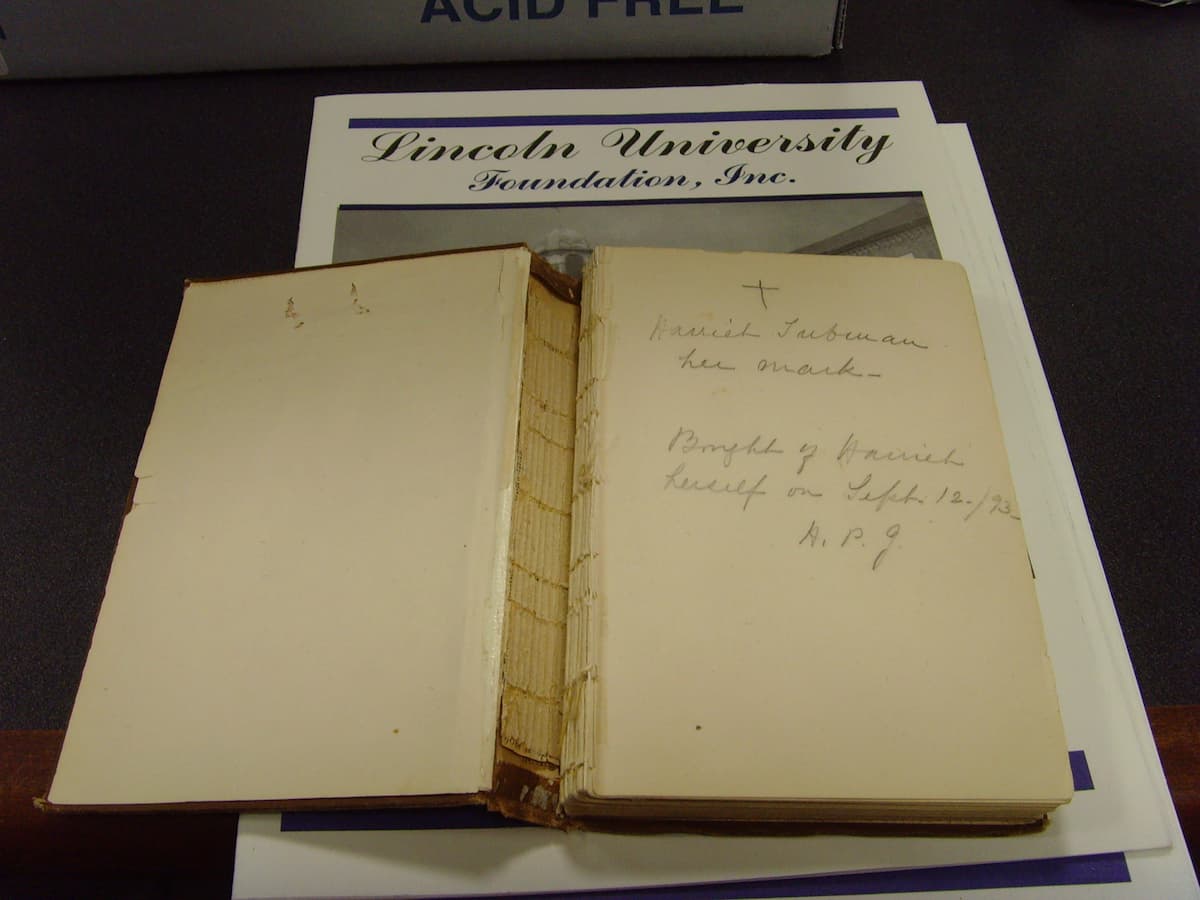 ACID FREE
Lincoln University
Foundation, Inc.
Harriet Tubman
her mark-
Bought of Harriet
herself on Sept. 12./93-
H. P. G.